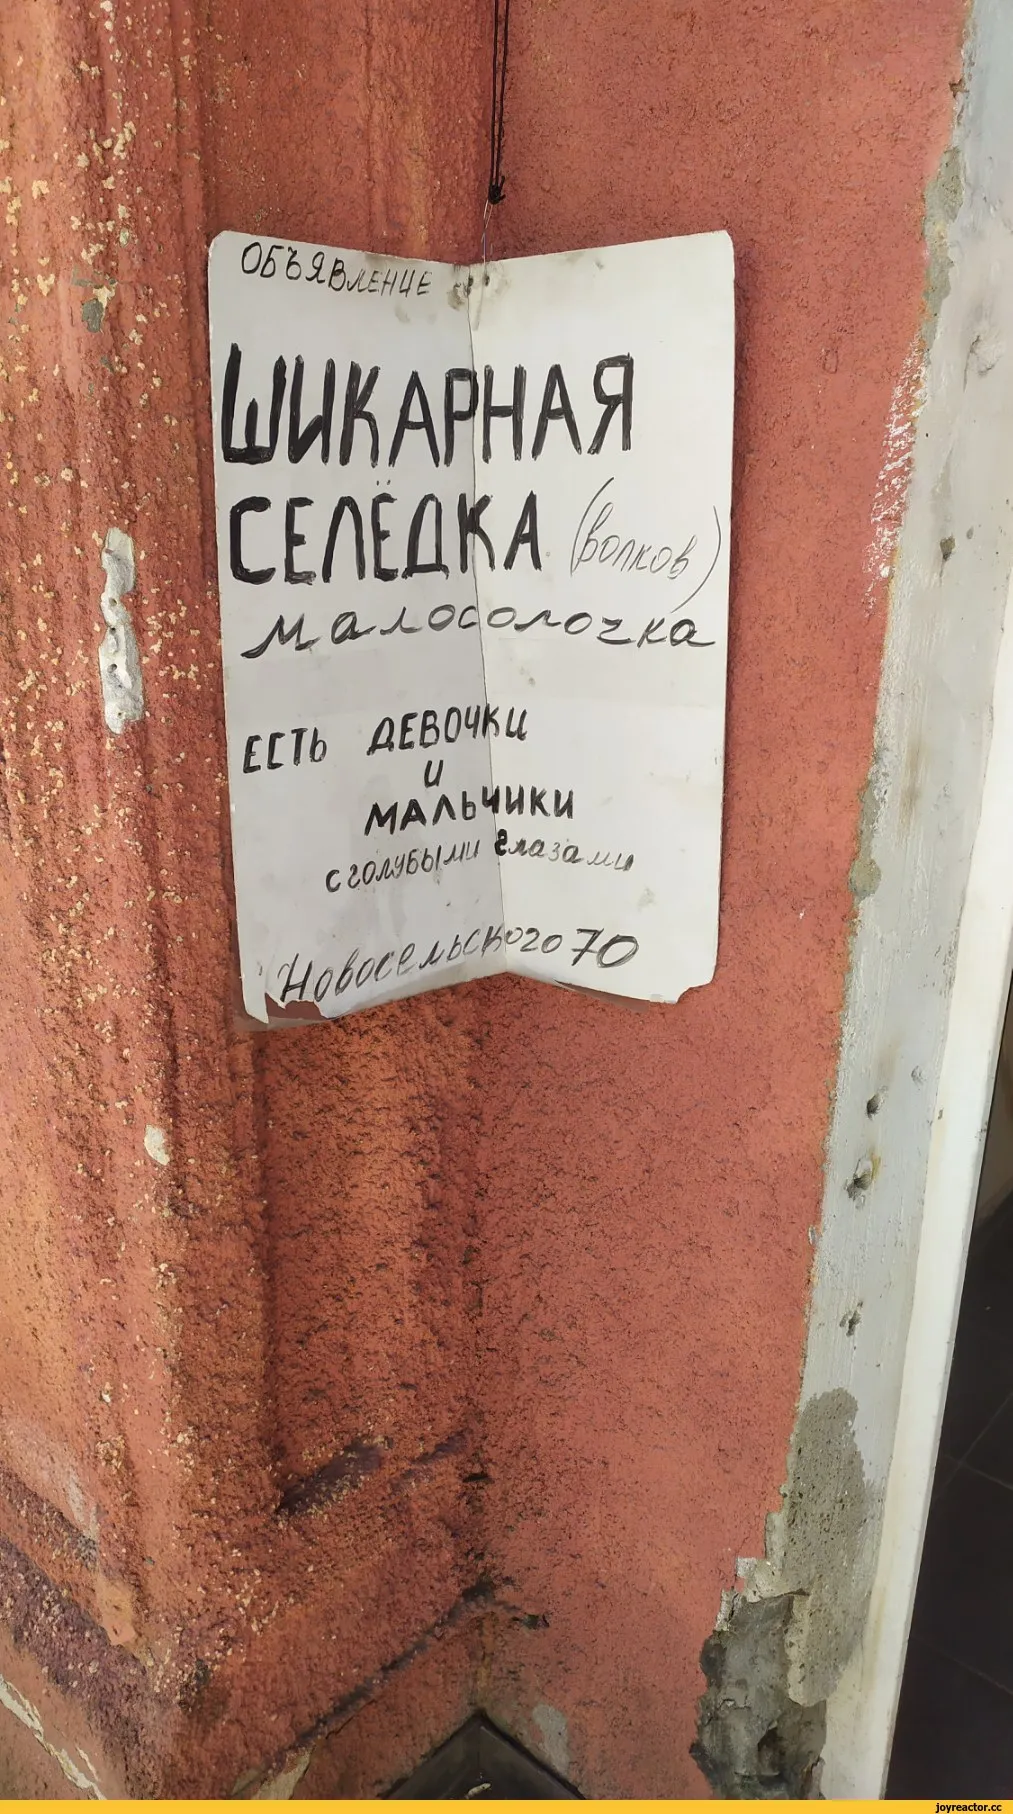 ОБЪЯВЛЕНИЕ
ШИКАРНАЯ
СЕЛЁДКА (волков)
малосолочка
ЕСТЬ ДЕВОЧКИ
И
МАЛЬЧИКИ
С ГОЛУБЫМИ глазами
Новосельского 70
joyreactor.cc